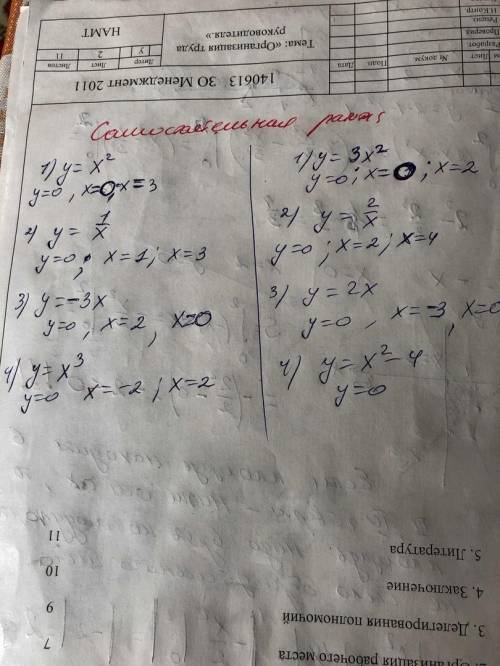 Самостоятельная работа
1) y = x²
y=0, x=0, x=3
2) y = 1/x
y=0, x=1; x=3
3) y=-3x
y=0; x=2, x=0
4) y=x³
y=0 x=-2; x=2
1) y=3x²
y=0; x=0; x=2
2) y = 2/x
y=0; x=2; x=4
3) y=2x
y=0, x=-3, x=0
4) y=x²-4
y=0
140613 ЗО Менеджмент 2011
Тема: «Организация труда
руководителя.»
Литер Лист Листов
У 2 11
НАМТ
Лист № докум Подп Дата
Разработ
Проверил
Реценз
Н Контр
рабочего места 7
3. Делегирования полномочий 9
4. Заключение 10
5. Литература 11